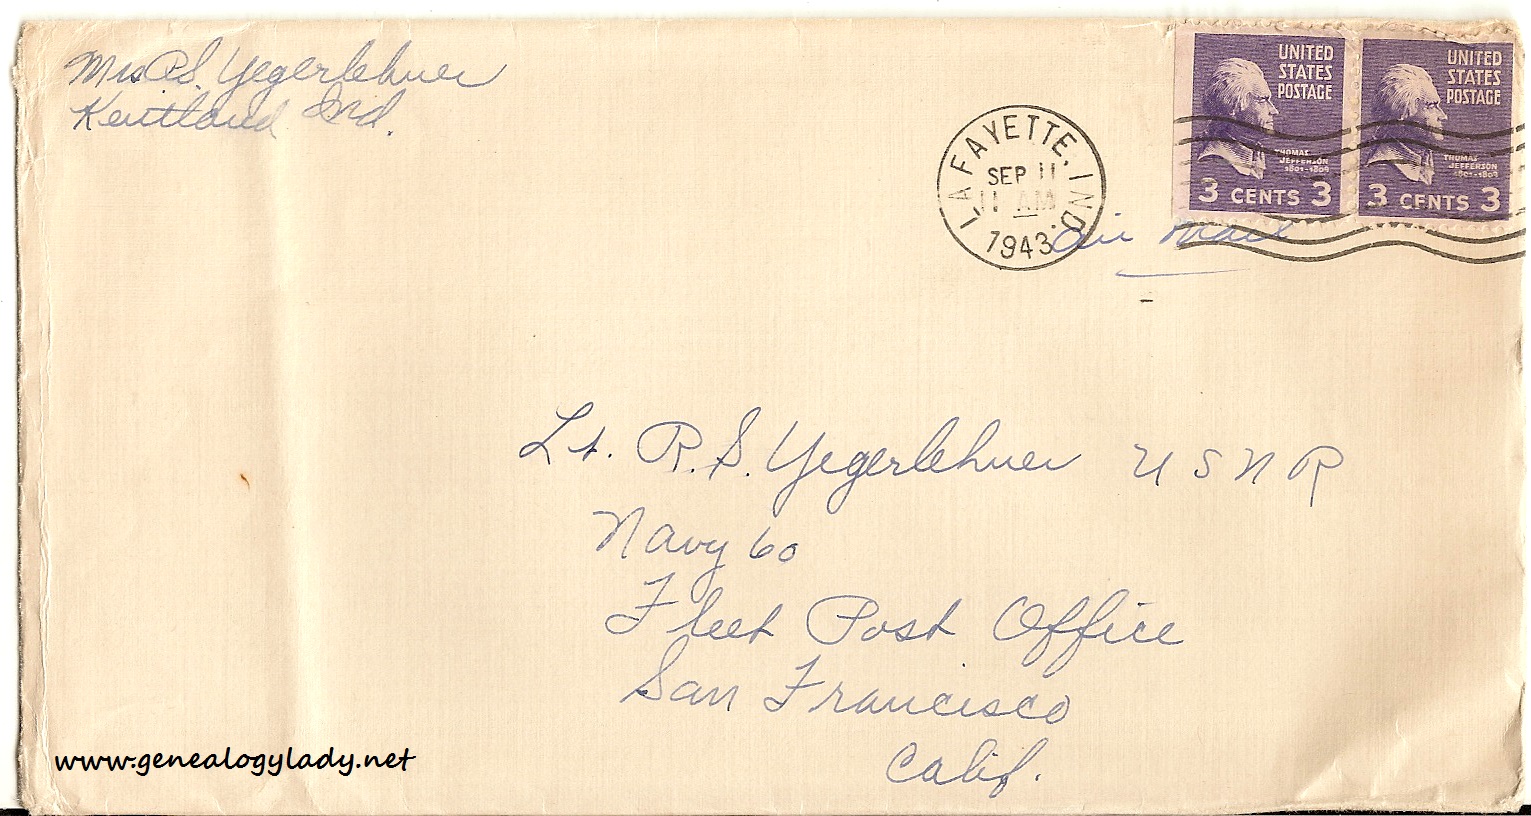 Mrs R.S. Yegerlehner
Kentland Ind.
UNITED
STATES
POSTAGE
THOMAS
JEFFERSON
1801-1809
3 CENTS 3
UNITED
STATES
POSTAGE
THOMAS
JEFFERSON
1801-1809
3 CENTS 3
LAFAYETTE, IND.
SEP 11
11 AM
1943
Air Mail
Lt. R.S. Yegerlehner USNR
Navy 60
Fleet Post Office
San Francisco
Calif.
www.genealogylady.net